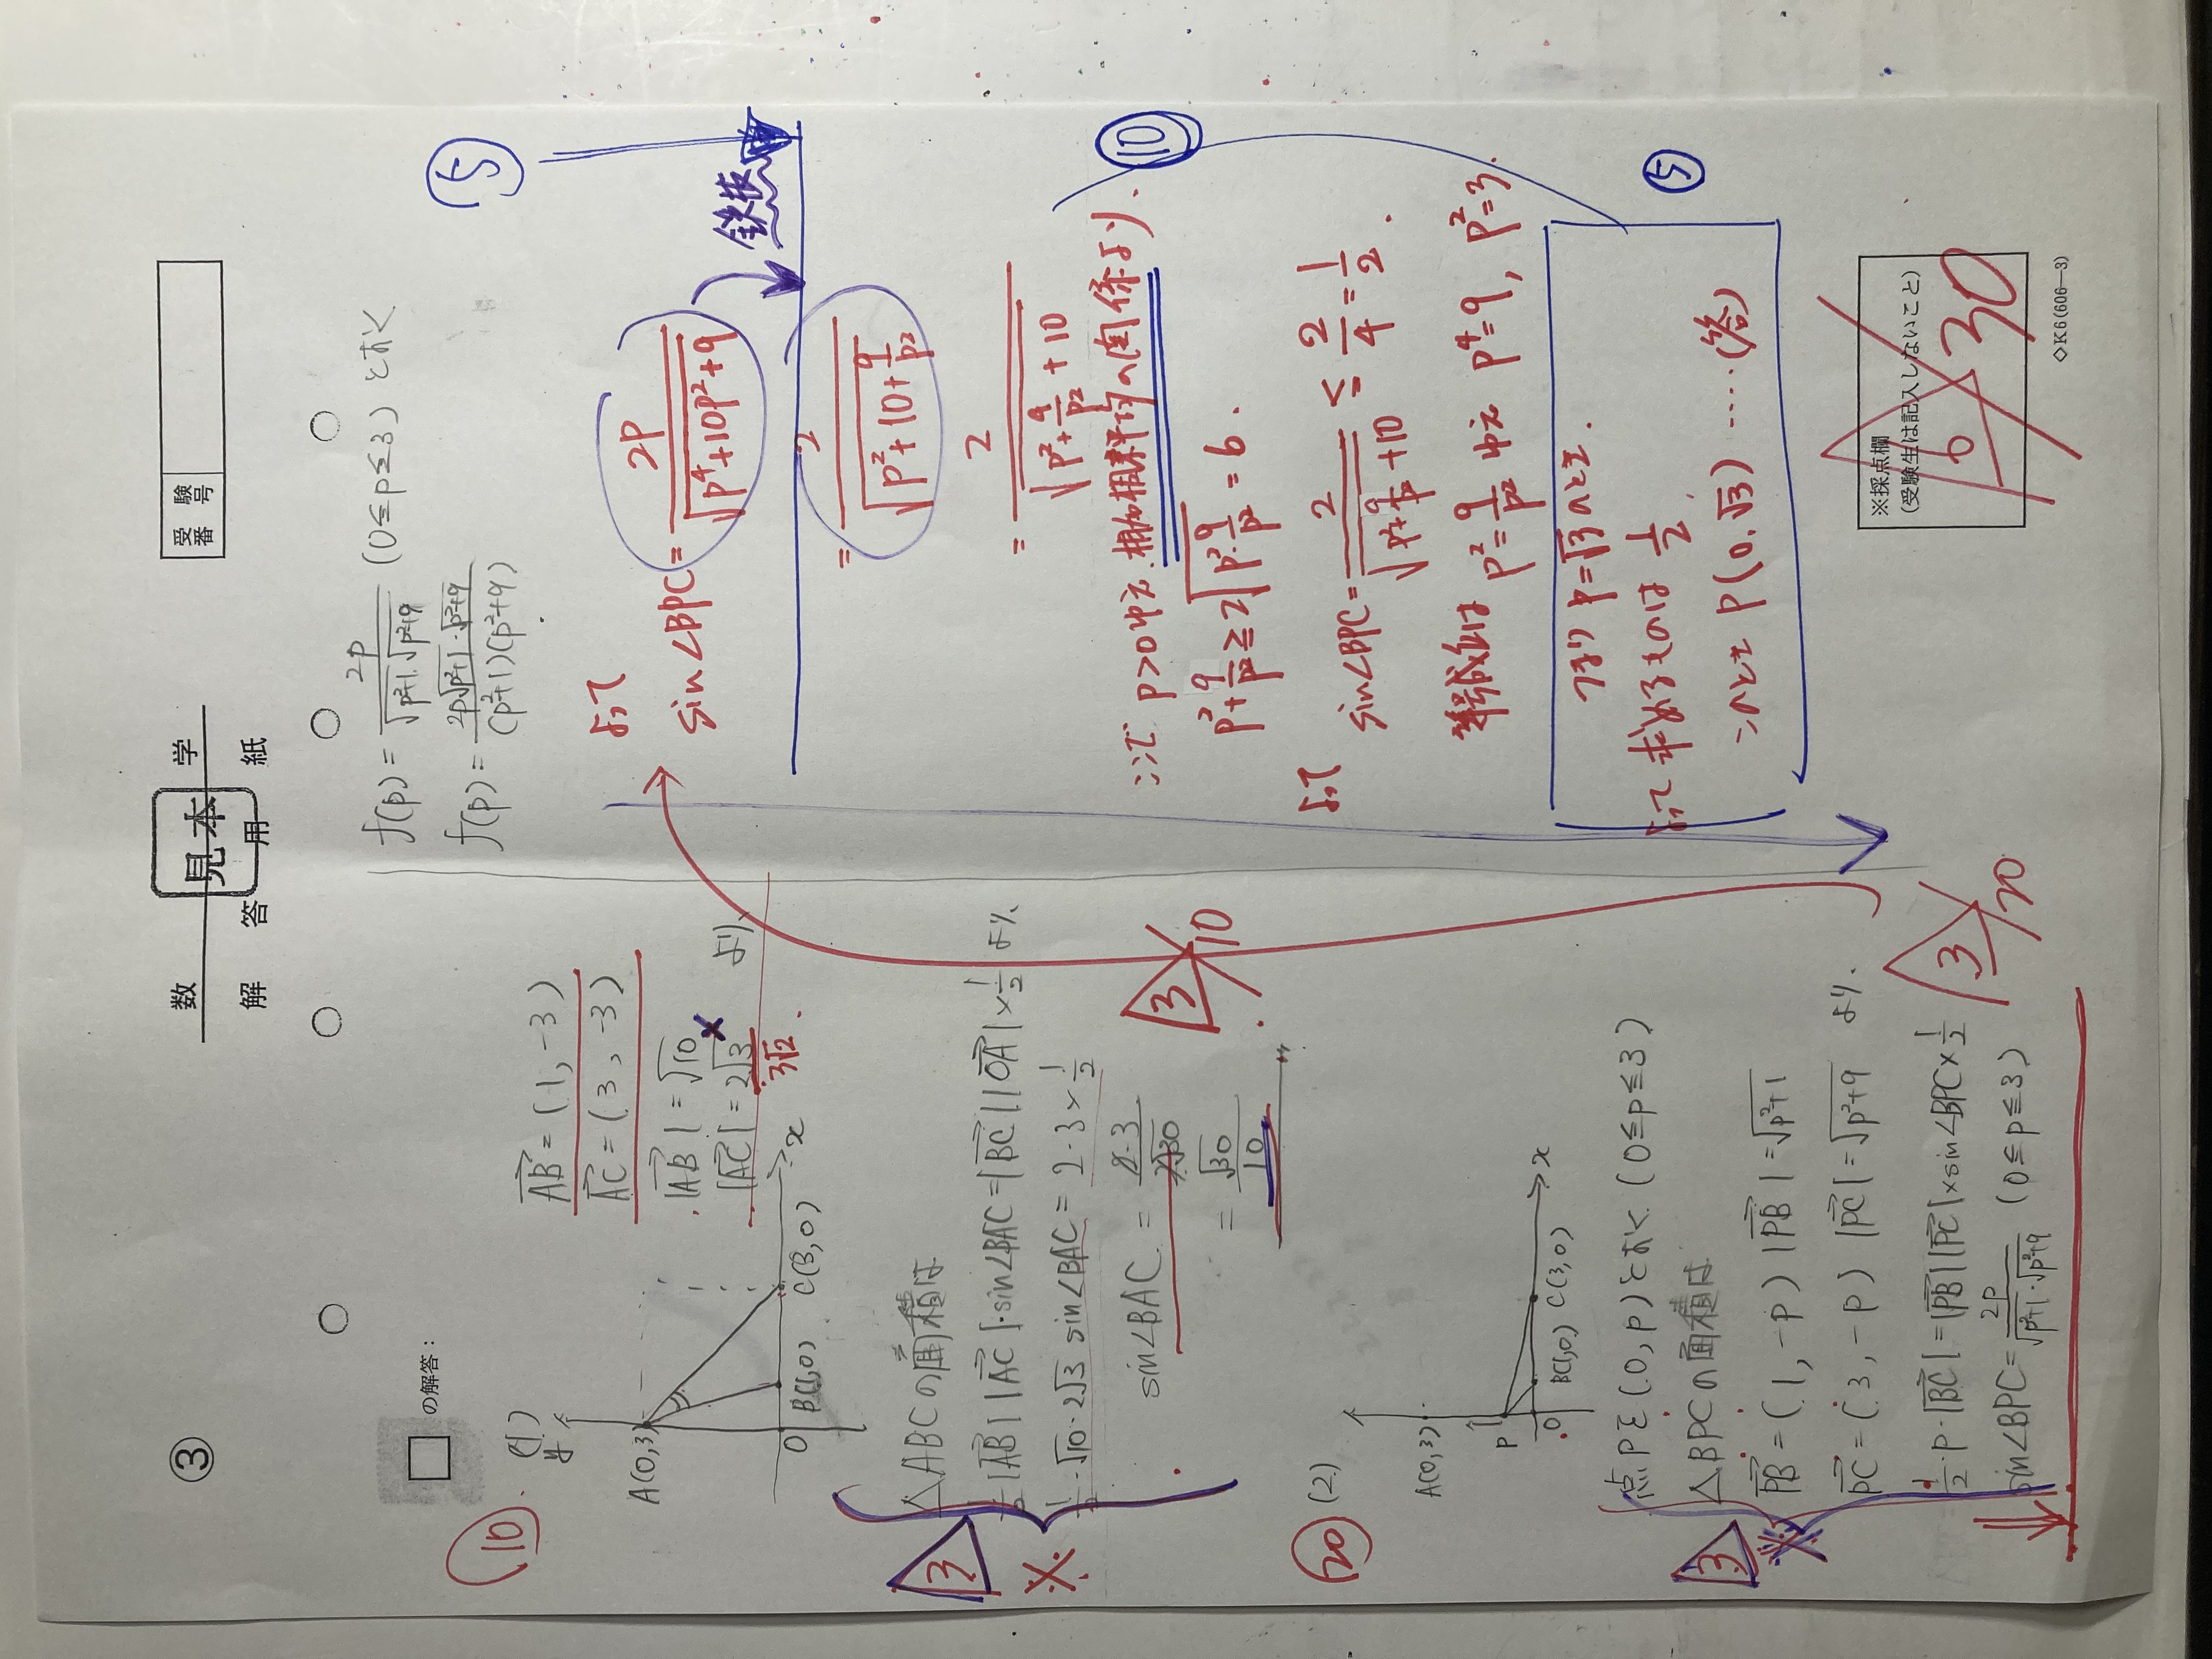 ③
数 学
見本
解 答 用 紙
受験番号
□ の解答:
⑩
(1)
y
A(0,3)
O
B(1,0)
C(3,0)
x
AB = (1, -3)
AC = (3, -3)
|AB| = √10
|AC| = 2√3 ×
より、
3√2
△ABCの面積は
1/2|AB||AC|·sin∠BAC = |BC||OA|×1/2 より、
1/2·√10·2√3 sin∠BAC = 2·3×1/2
sin∠BAC = 2·3/2√30
= √30/10
3
※
3/10
⑳
(2)
A(0,3)
P
O
B(1,0)
C(3,0)
x
点Pを(0,p)とおく (0≦p≦3)
△BPCの面積は
PB = (1, -p) |PB| = √p²+1
PC = (3, -p) |PC| = √p²+9 より、
1/2·p·|BC| = |PB||PC|×sin∠BPC×1/2
sin∠BPC = 2p/√p²+1·√p²+9 (0≦p≦3)
3
※
3/20
f(p) = 2p/√p²+1·√p²+9 (0≦p≦3) とおく
f(p) = 2p√p²+1·√p²+9/(p²+1)(p²+9)
よって
sin∠BPC = 2p/√p⁴+10p²+9
鉄板
⑤
= 2/√p²+10+9/p²
= 2/√p²+9/p²+10
ここで p>0ゆえ、相加相乗平均の関係より、
⑩
p²+9/p² ≧ 2√p²·9/p² = 6.
よって
sin∠BPC = 2/√p²+9/p²+10 ≦ 2/4 = 1/2.
等号成立は p² = 9/p² ゆえ p⁴=9, p²=3.
つまり p=√3 のとき.
よって求めるものは 1/2
このとき P(0,√3) ……(答)
⑤
※採点欄
(受験生は記入しないこと)
6/30
◇K6(606—3)